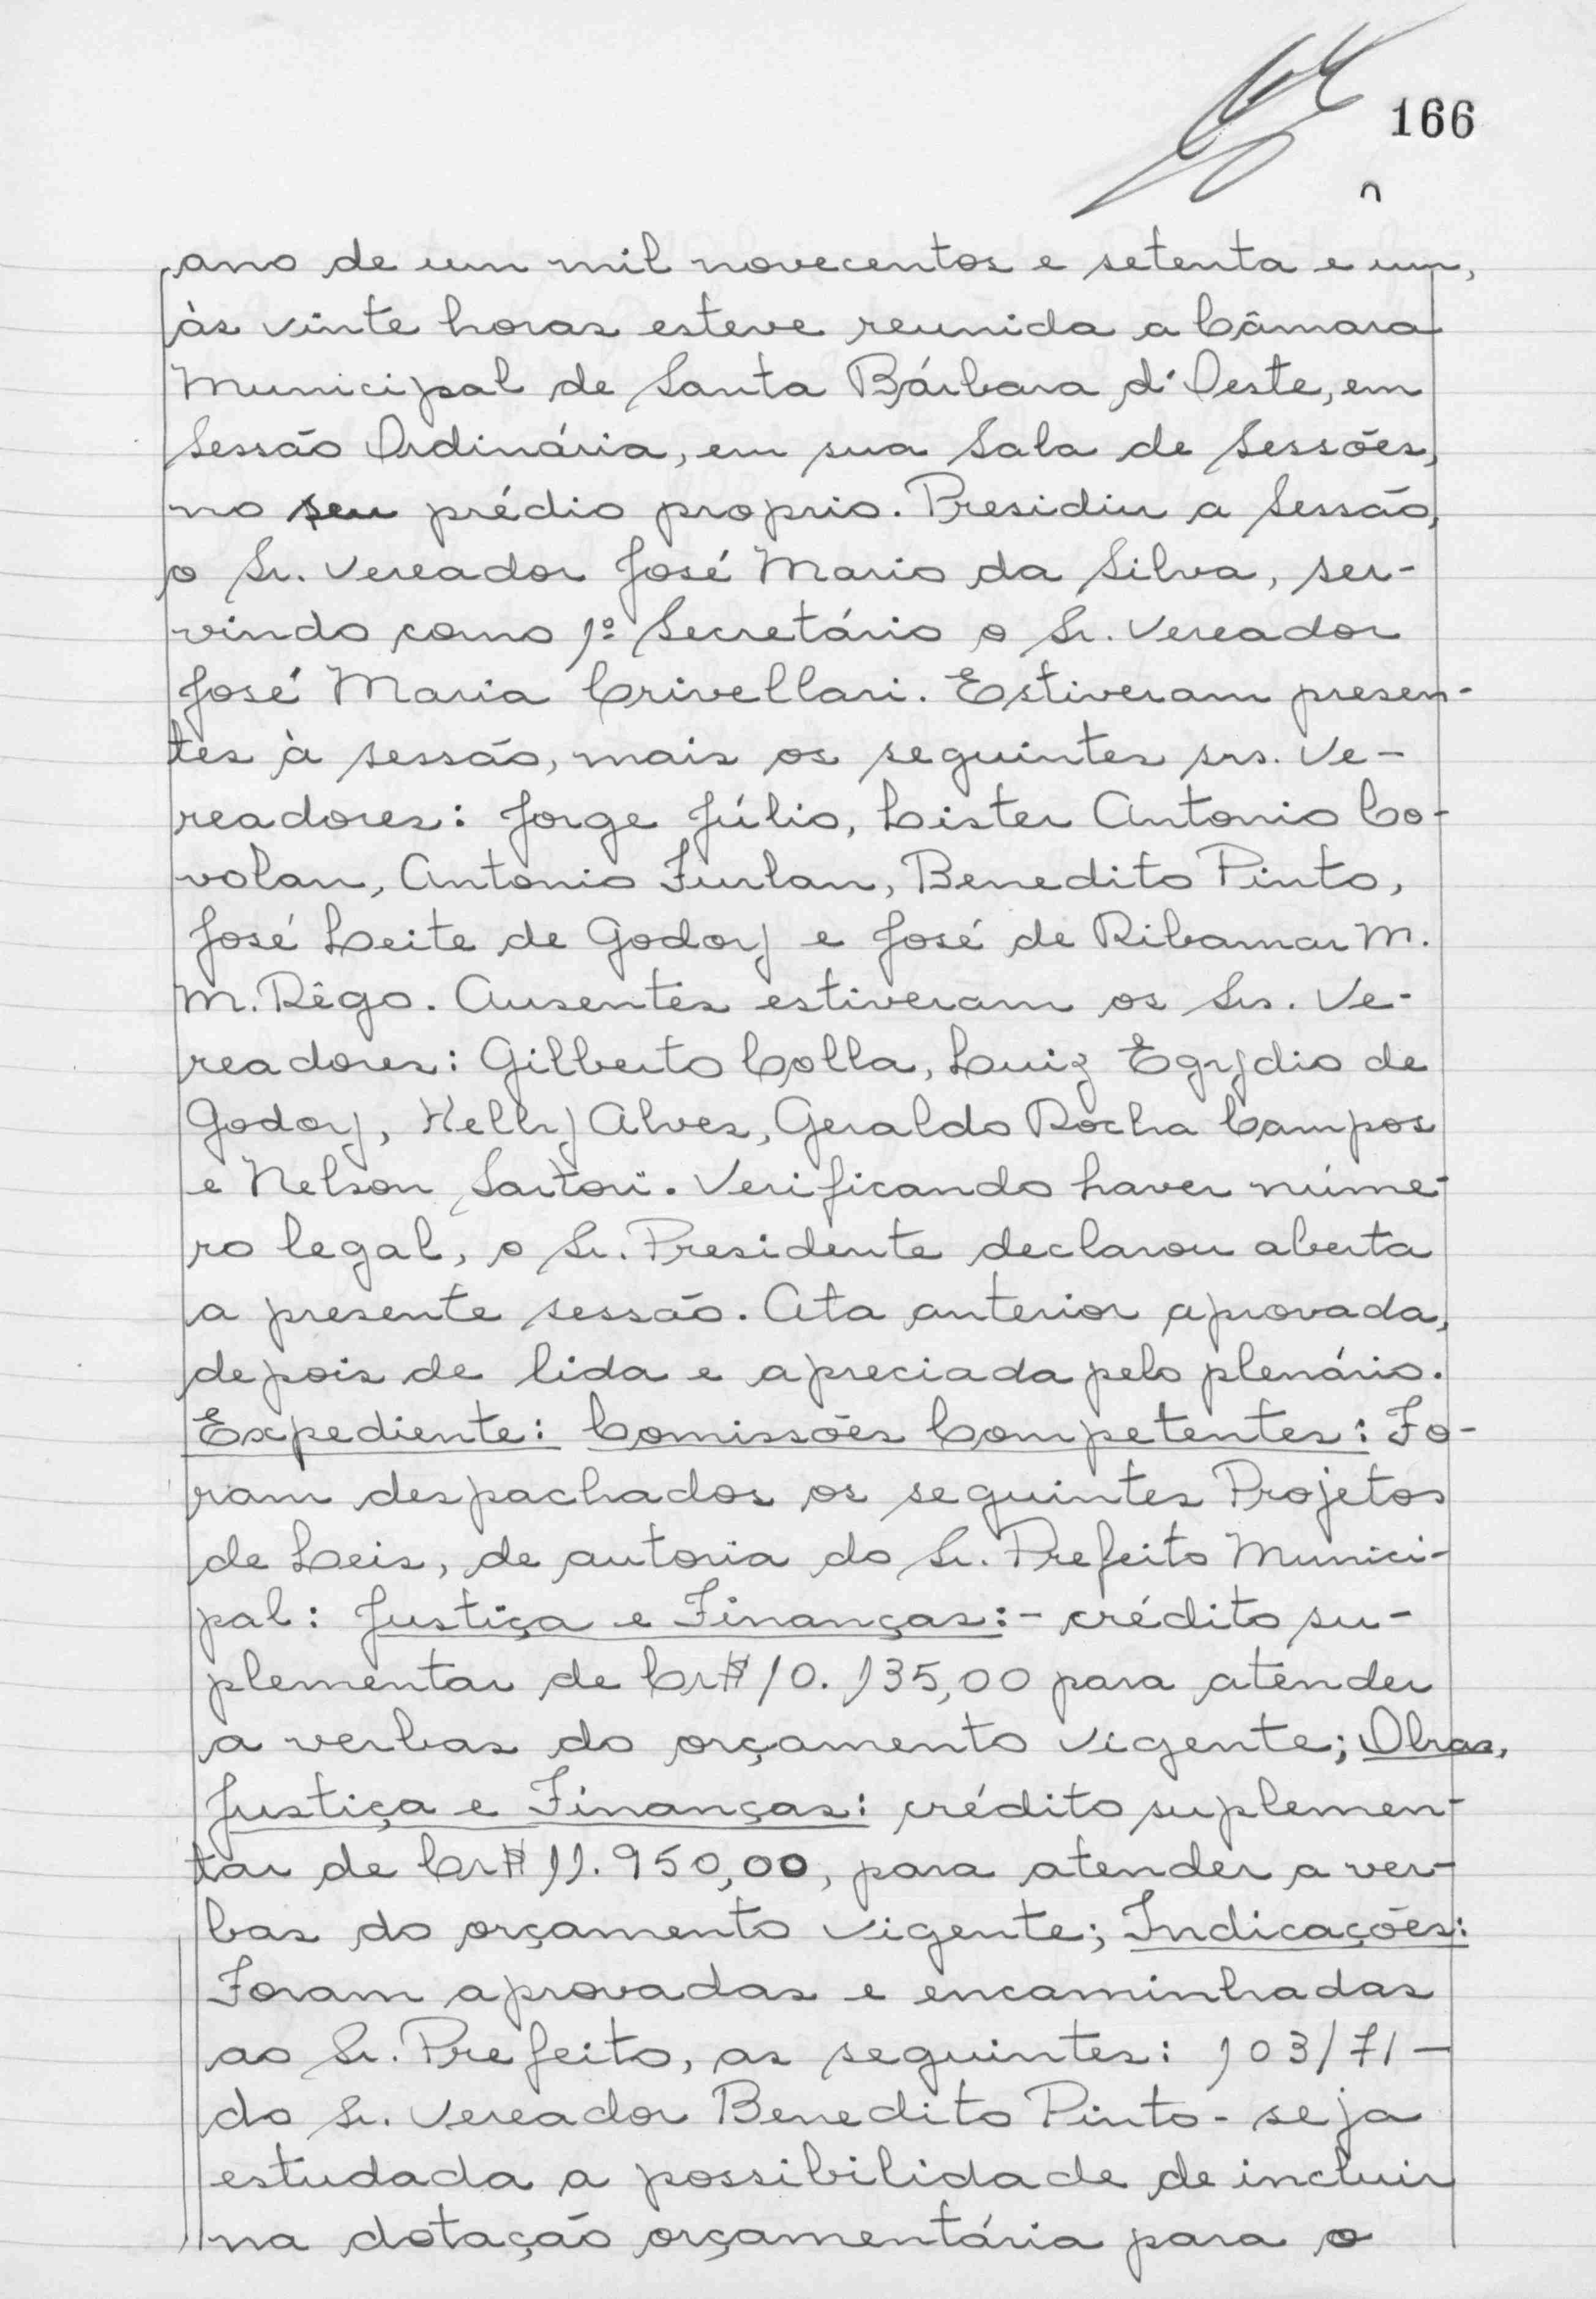 166
ano de um mil novecentos e setenta e um,
às vinte horas esteve reunida a Câmara
Municipal de Santa Bárbara d'Oeste, em
Sessão Ordinária, em sua Sala de Sessões,
no seu prédio proprio. Presidiu a Sessão,
o Sr. Vereador José Maria da Silva, ser-
vindo como 1º Secretário o Sr. Vereador
José Maria Crivellari. Estiveram presen-
tes à sessão, mais os seguintes srs. Ve-
readores: Jorge Júlio, Lister Antonio Co-
volan, Antonio Furlan, Benedito Pinto,
José Leite de Godoy e José de Ribamar M.
M. Rêgo. Ausentes estiveram os Srs. Ve-
readores: Gilberto Colla, Luiz Egydio de
Godoy, Helly Alves, Geraldo Rocha Campos
e Nelson Sartori. Verificando haver núme-
ro legal, o Sr. Presidente declarou aberta
a presente sessão. Ata anterior aprovada,
depois de lida e apreciada pelo plenário.
Expediente: Comissões Competentes: Fo-
ram despachados os seguintes Projetos
de Leis, de autoria do Sr. Prefeito Munici-
pal: Justiça e Finanças:- crédito su-
plementar de Cr$ 10.135,00 para atender
a verbas do orçamento vigente; Obras,
Justiça e Finanças: crédito suplemen-
tar de Cr$ 11.950,00, para atender a ver-
bas do orçamento vigente; Indicações:
Foram aprovadas e encaminhadas
ao Sr. Prefeito, as seguintes: 103/71-
do Sr. Vereador Benedito Pinto - seja
estudada a possibilidade de incluir
na dotação orçamentária para o